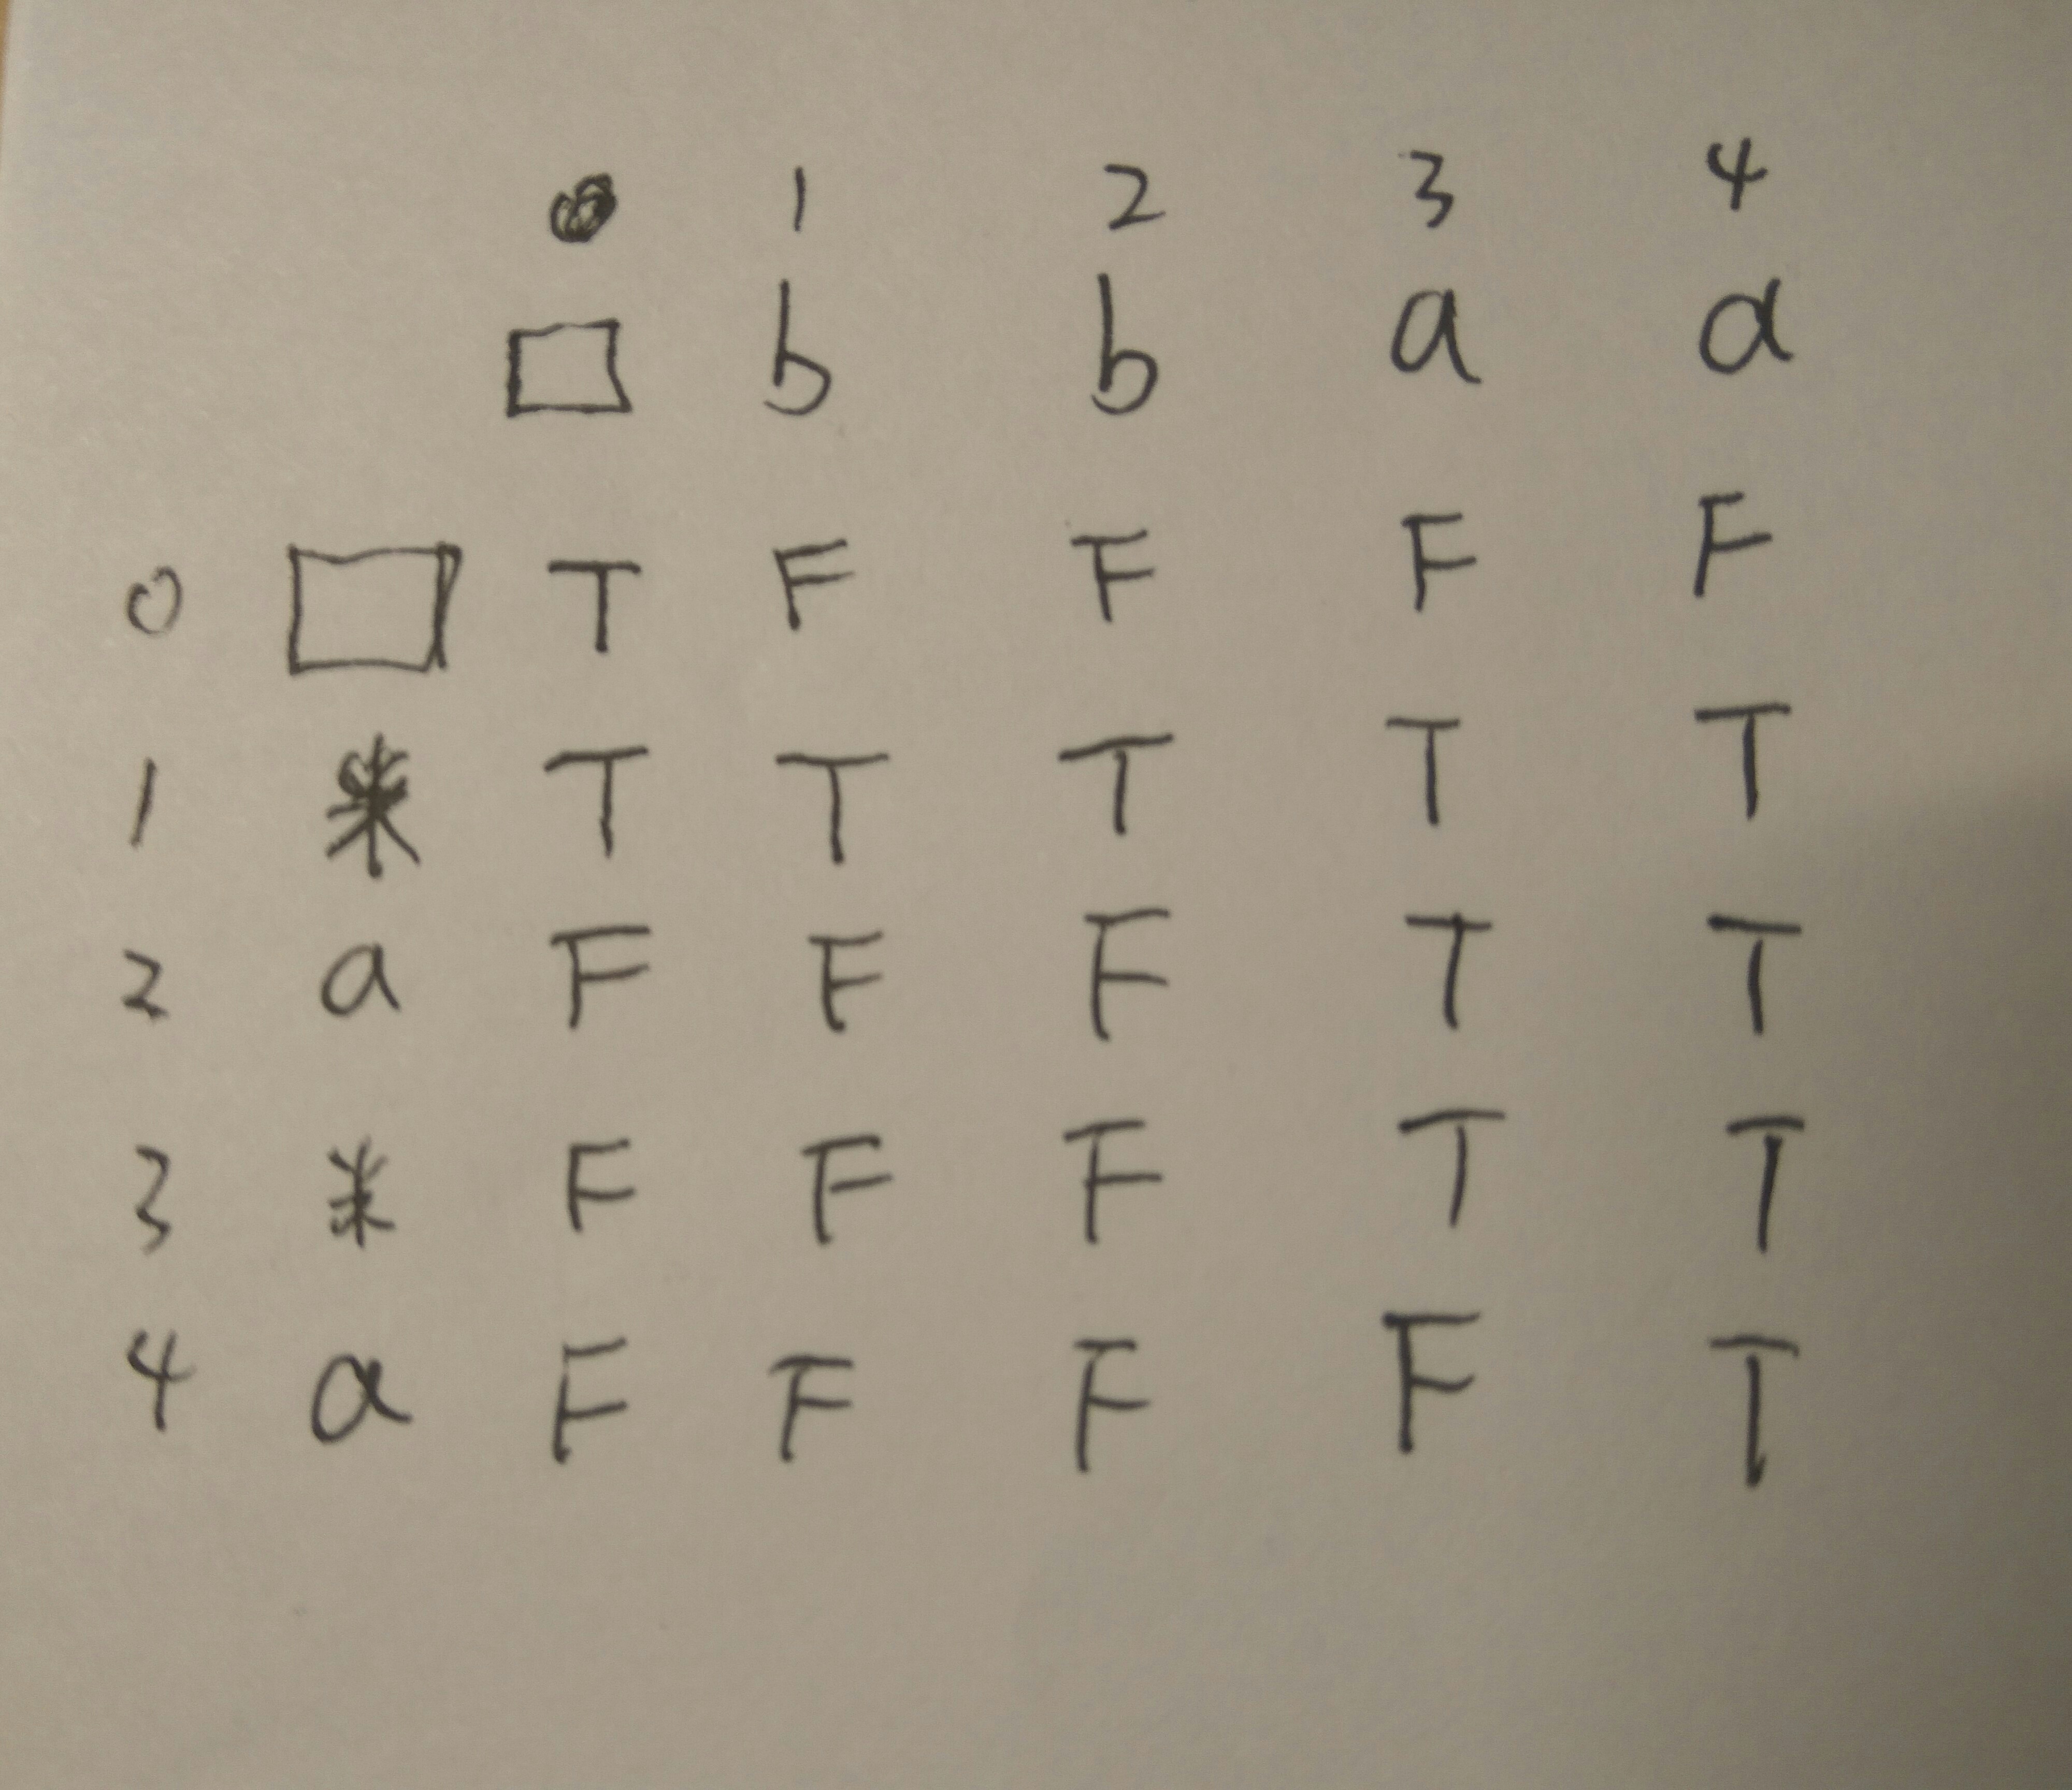 1 2 3 4
□ b b a a
0 □ T F F F F
1 * T T T T T
2 a F F F T T
3 * F F F T T
4 a F F F F T